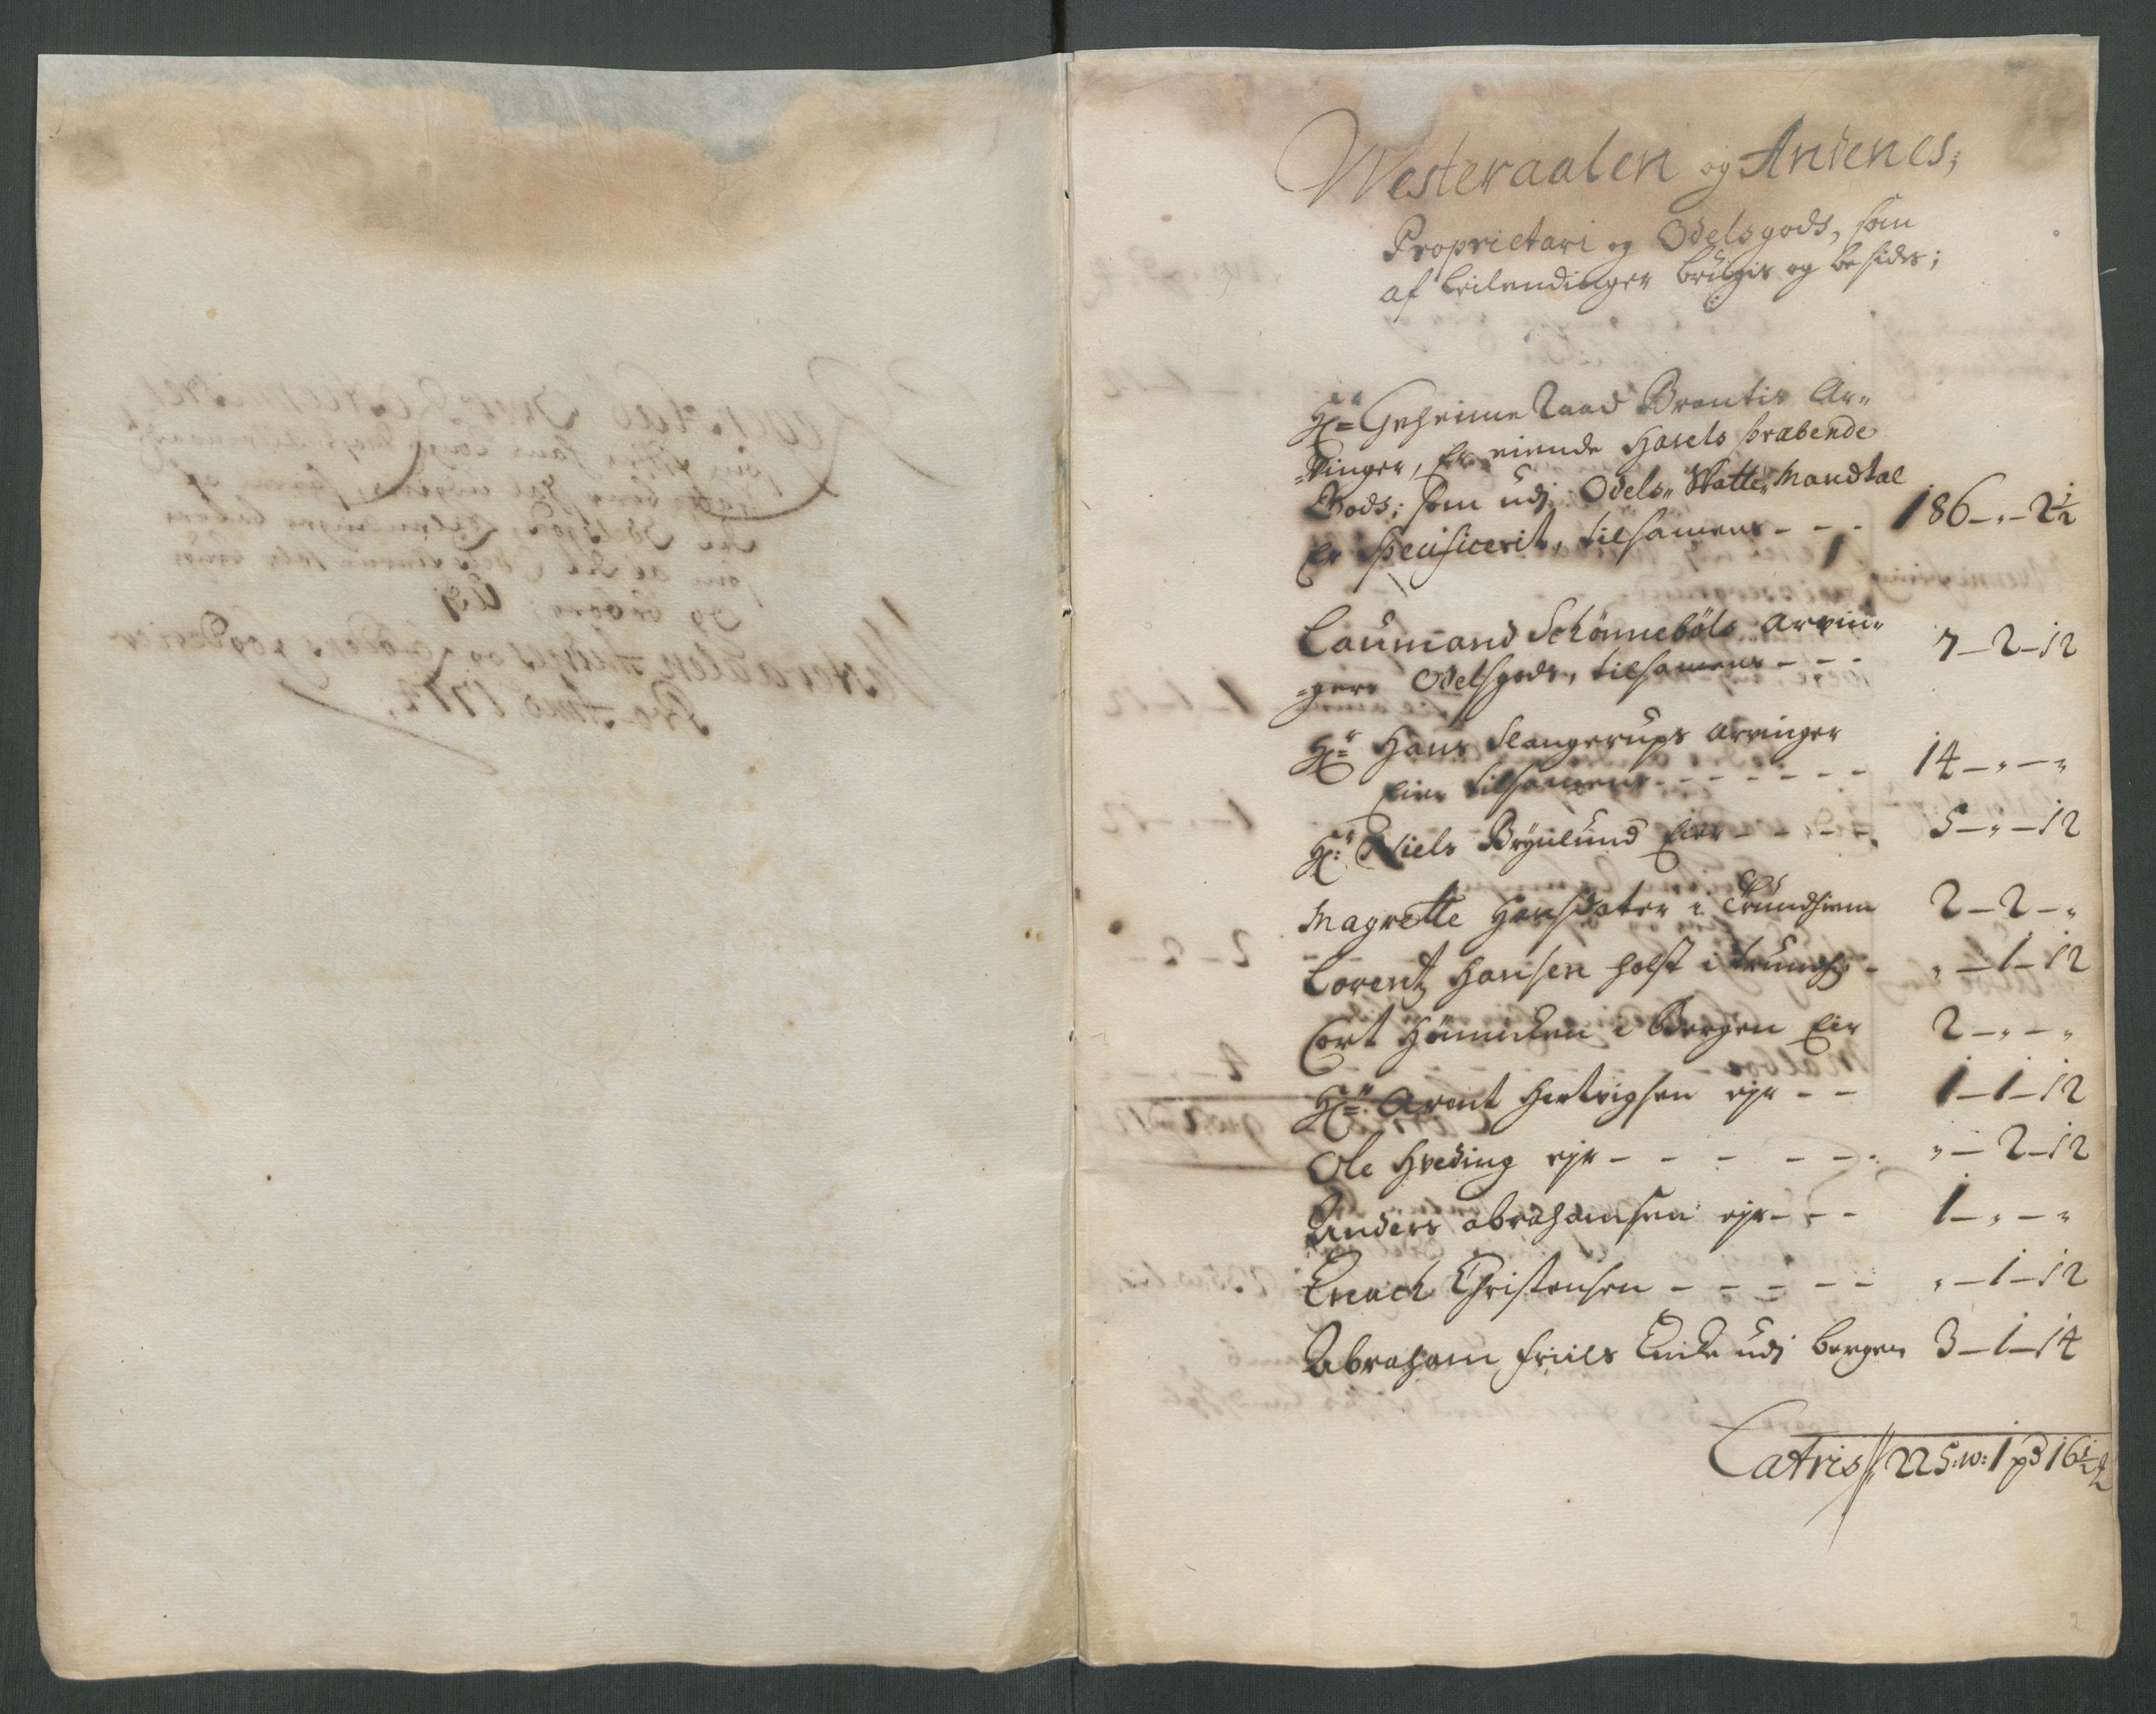 Westeraalen og Andenes;
Proprietari og Odelsgods, som
af Leilendinger brugis og besidis;
Hr: Geheime Raad Brantis Ar-
-vinger, Er eiende Hasels præbende
Gods; som udj Odels Skatte Mandtal
Er specificerit, tilsamens - - - 186 - " - 2½
Laumand Schönnebøls arvin-
-gers Odelsgods, tilsamens - - - 7 - 2 - 12
Hr: Hans Slangerups arvinger
Eier tilsamens - - - - - - - 14 - " - "
Hr: Niels Brynlund Eier - - - - - 5 - " - 12
Magrette Hansdater i Trundhiem 2 - 2 - "
Lorentz Hansen Holst i Trundh: - " - 1 - 12
Cort Hönnichen i Bergen Eir 2 - " - "
Hr: Arent Hartvigsen ejr - - 1 - 1 - 12
Ole Hveding ejr - - - - - - " - 2 - 12
Anders Abrahamsen ejr - - - 1 - " - "
Enoch Christensen - - - - - " - 1 - 12
Abraham Friils Encke udj bergen 3 - 1 - 14
Latris 225 w: 1 pd 16½
2